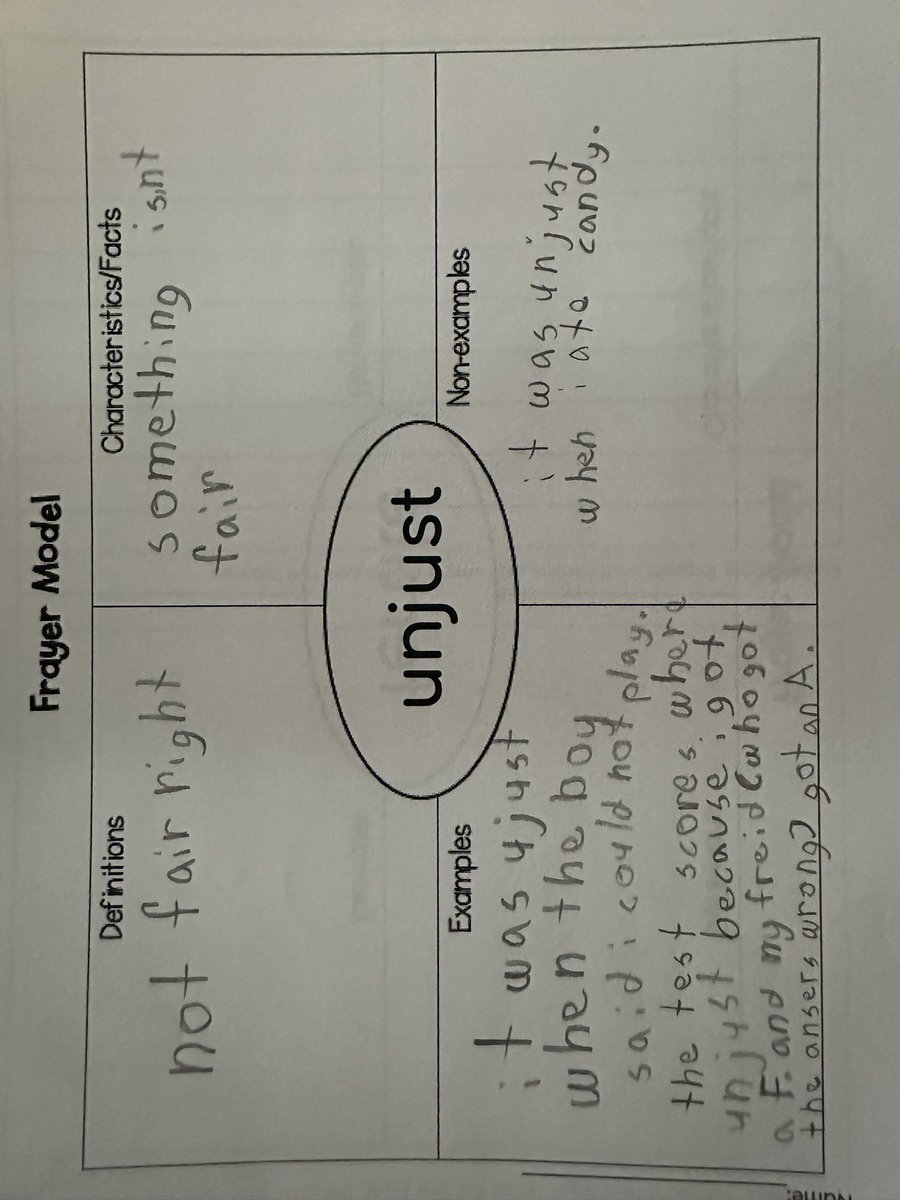 Frayer Model
Definitions
not fair right
Characteristics/Facts
something isnt
fair
unjust
Examples
it was ujust
when the boy
said i could not play.
the test scores where
unjust because i got
a F. and my freid (who got
the ansers wrong) got an A.
Non-examples
it was unjust
when i ate candy.
Name: